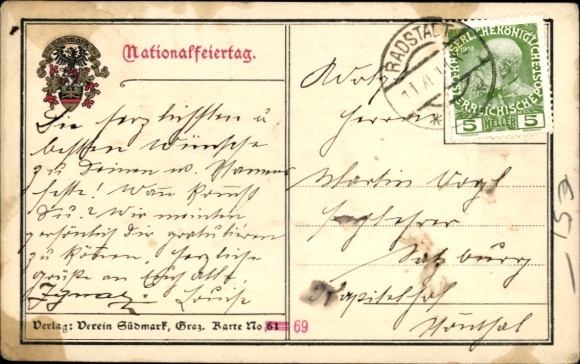 Nationalfeiertag.
Die herzlichsten u.
besten Wünsche
zu Deinem w. Namens
feste! Wann kommst
Du? Wir meinten
persönlich Dir gratulieren
zu können. Herzliche
Grüße an Euch alle
Ignaz. Louise
Verlag: Verein Südmark, Graz. Karte No 61 69
RADSTADT
11 XI
1908
KAISERLICHE KÖNIGLICHE ÖSTERREICHISCHE
5 HELLER 5
Herrn
Martin Vogl
Salzburg
Kapitelhof
153